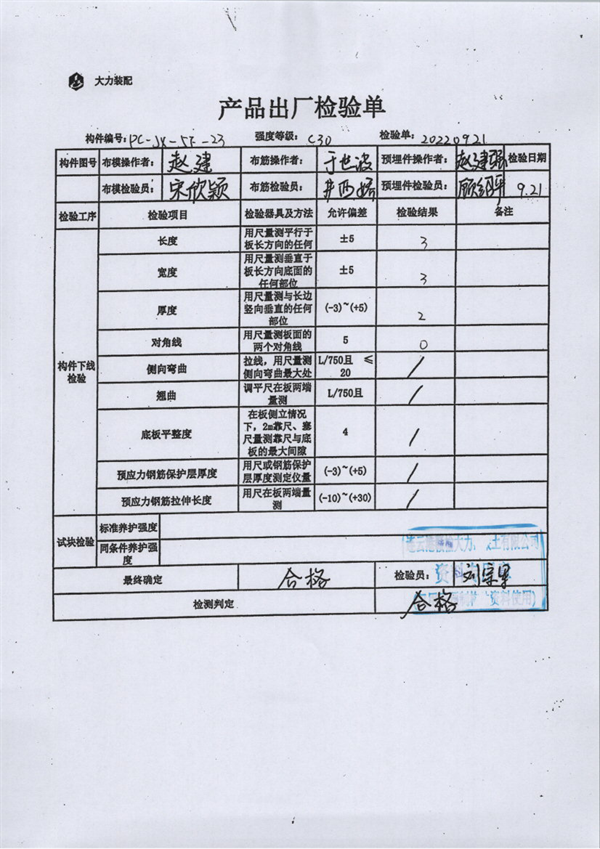 大力装配
产品出厂检验单
构件编号: PC-JX-5F-23 强度等级: C30 检验单: 20220921
构件图号 布模操作者: 赵建 布筋操作者: 于世波 预埋件操作者: 赵建强 检验日期
布模检验员: 宋欣颖 布筋检验员: 预埋件检验员: 9.21
检验工序 检验项目 检验器具及方法 允许偏差 检验结果 备注
构件下线检验
长度 用尺量测平行于板长方向的任何 ±5 3
宽度 用尺量测垂直于板长方向底面的任何部位 ±5 3
厚度 用尺量测与长边竖向垂直的任何部位 (-3)~(+5) 2
对角线 用尺量测板面的两个对角线 5 0
侧向弯曲 拉线,用尺量测侧向弯曲最大处 L/750且 ≤20 /
翘曲 调平尺在板两端量测 L/750且 /
底板平整度 在板侧立情况下,2m靠尺、塞尺量测靠尺与底板的最大间隙 4 /
预应力钢筋保护层厚度 用尺或钢筋保护层厚度测定仪量 (-3)~(+5) /
预应力钢筋拉伸长度 用尺在板两端量测 (-10)~(+30) /
试块检验 标准养护强度
同条件养护强度
最终确定 合格 检验员:
检测判定 合格